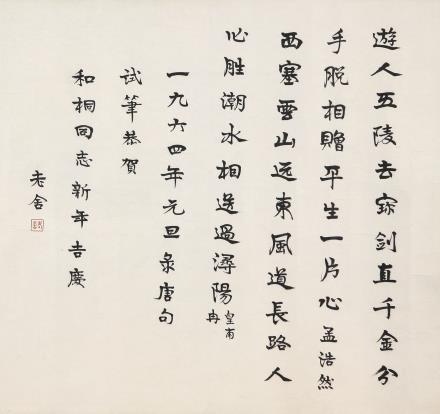 遊人五陵去寶剑直千金分
手脱相贈平生一片心孟浩然
西塞雲山远東風道長路人
心胜潮水相送過潯陽皇甫冉
一九六四年元旦录唐句
试筆恭賀
和桐同志新年吉慶
老舍